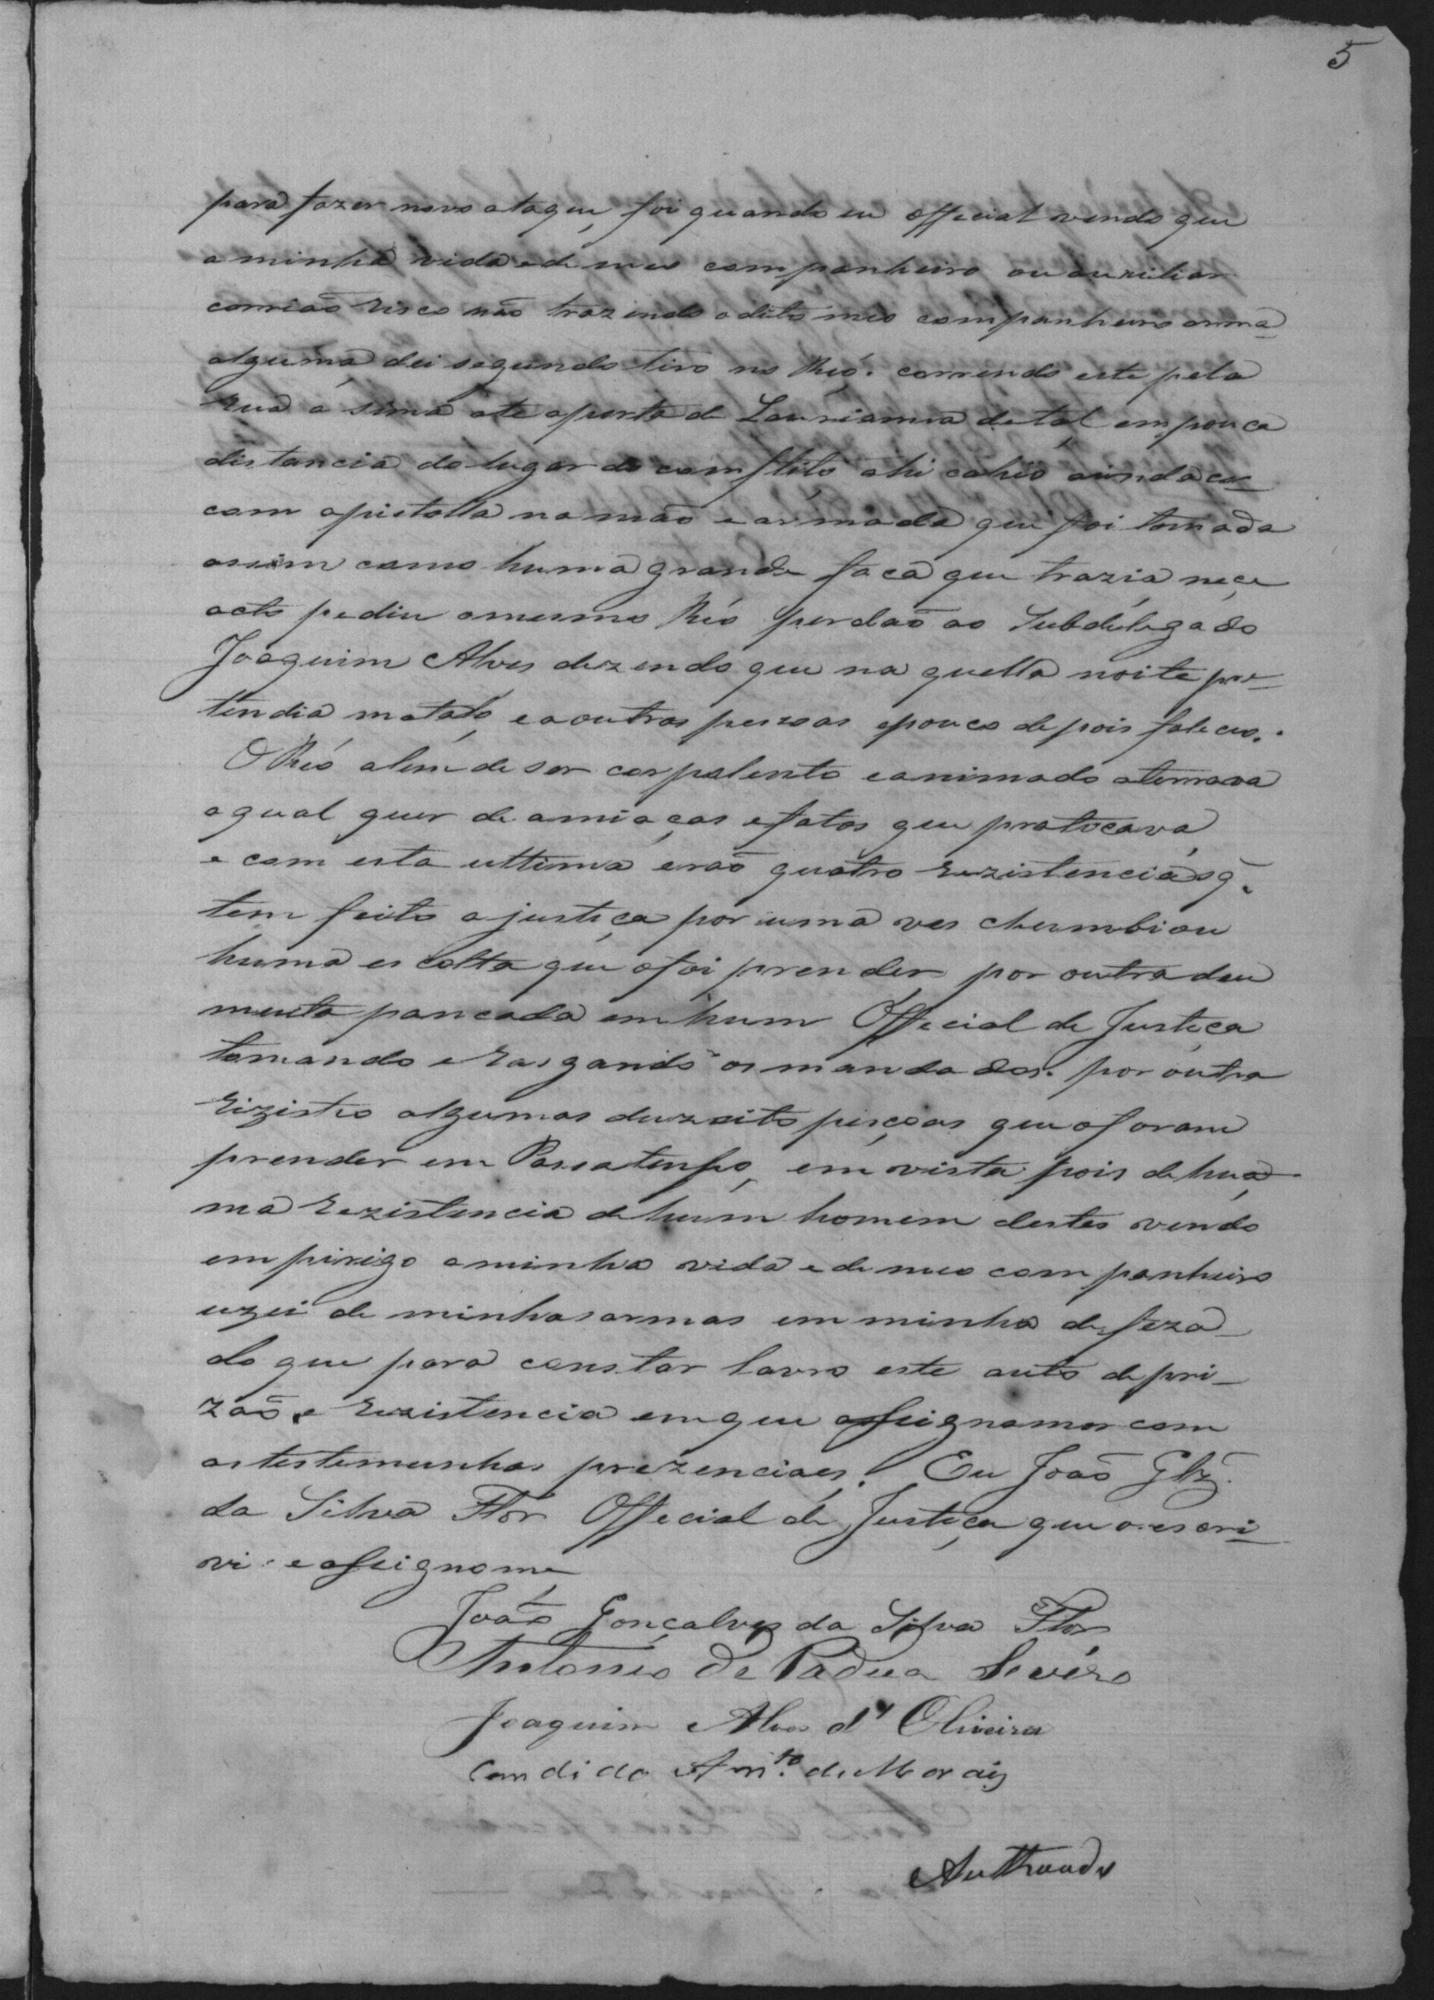 5
para fazer novo ataque, foi quando eu official vendo que
a minha vida e de meo companheiro ou auxiliar
corrião risco não trazendo o dito meo companheiro arma
alguma dei segundo tiro no Réo. correndo este pela
rua a sima ate a porta de Laurianna de tal em pouca
distancia do lugar do comflito ahi cahio ainda co-
com a pistolla na mão e armada que foi tomada
assim como huma grande faca que trazia, neçe
acto pediu o mesmo Réo perdão ao Subdelegado
Joaquim Alves dezendo que na quella noite per-
tendia matalo, e a outras pessoas e pouco depois faleceo.
O Réo alem de ser corpolento e animado aterrava
a qual quer de amiaças e fatos que pratocava,
e com esta ultima erão quatro rezistencias q̃.
tem feito a justiça por uma ves chumbiou
huma escolta que o foi prender por outra deu
muita pancada em hum Official de Justiça
tomando e rasgando os mandados. por outra
rizistio algumas dezoito peçoas que o foram
prender em Passatempo, em vista pois de hua
ma rezistencia de hum homem destes vendo
em pirigo a minha vida e de meo companheiro
uzei de minhas armas em minha defeza
do que para constar lavro este auto de pri-
zão e rezistencia em que assignamos com
as testemunhas prezenciaes. Eu João Glz̃.
da Silva Flor Official de Justiça que o escri-
vi e assigno me
João Gonçalves da Silva Flor
Antonio de Padua Severo
Joaquim Alves d' Oliveira
Candido Ant.º de Morais